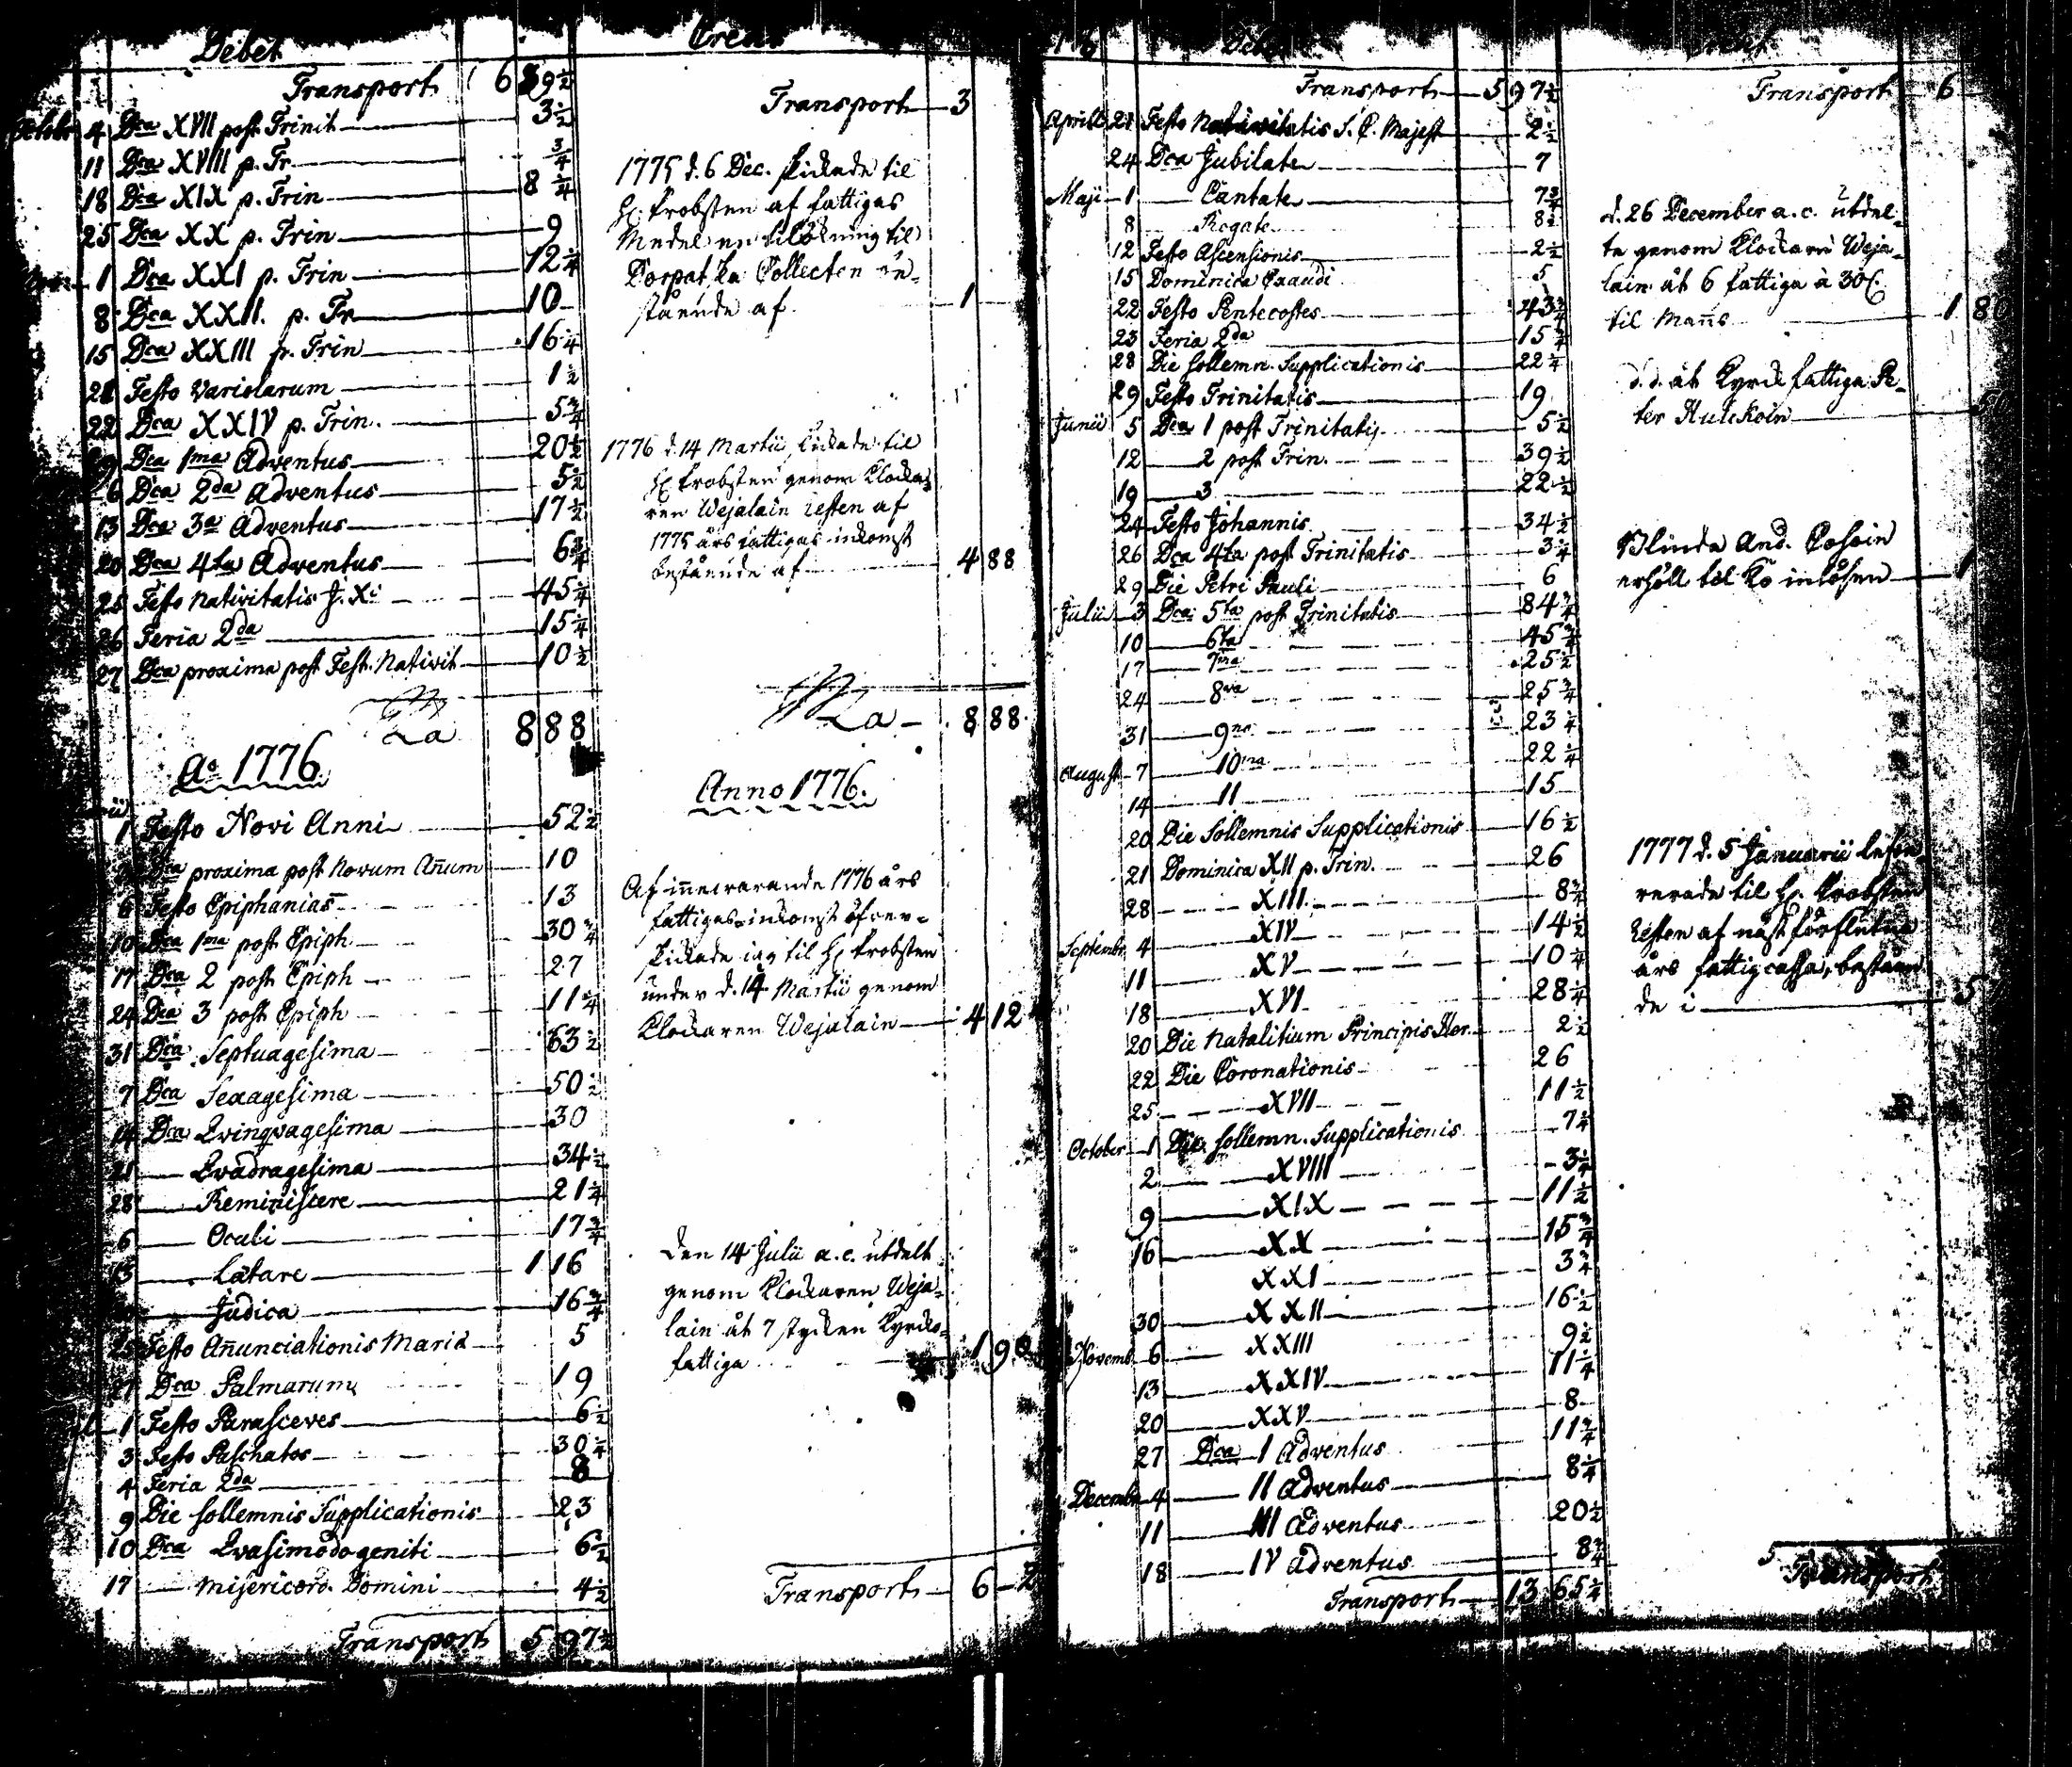 Debet
Transport 6 89½
Octobr 4 Dca XVII post Trinit 3½
11 Dca XVIII p. Tr. ¾
18 Dca XIX p. Trin 8¼
25 Dca XX p. Trin 9
1 Dca XXI p. Trin 12¼
8 Dca XXII. p. Tr 10
15 Dca XXIII p. Trin 16¼
21 Festo Variolarum 1½
22 Dca XXIV p. Trin. 5¾
29 Dca 1ma Adventus 20½
6 Dca 2da Adventus 5½
13 Dca 3a Adventus 17½
20 Dca 4ta Adventus 6¾
25 Festo Nativitatis J. Xi 45¼
26 Feria 2da 15¼
27 Dca proxima post Fest. Nativit 10½
La 8 88
Ao 1776
1 Festo Novi Anni 52½
Dca proxima post Novum Añum 10
6 Festo Epiphanias 13
10 Dca 1ma post Epiph. 30¾
17 Dca 2 post Epiph 27
24 Dca 3 post Epiph 11¼
31 Dca Septuagesima 63½
7 Dca Sexagesima 50½
14 Dca Qvinqvagesima 30
21 Qvadragesima 34½
28 Reminiscere 21¼
6 Oculi 17¾
13 Lätare 1 16
Judica 16¾
25 Festo Añunciationis Maria 5
27 Dca Palmarum 19
1 Festo Parasceves 6½
3 Festo Paschatos 30¼
4 Feria 2da 8
9 Die sollemnis Supplicationis 23
10 Dca Qvasimodogeniti 6½
17 Misericord. Domini 4½
Transport 5 97½
Credit
Transport 3
1775 d. 6 Dec. skickade til
Hr Probsten af fattigas
Medel en tilökning til
Dorpatska Collecten
stående af 1
1776 d. 14 Martii skickade til
Hr Probsten genom Klocka-
ren Wejalain resten af
1775 års fattigas inkomst
bestående af 4 88
La 8 88
Anno 1776.
Af innewarande 1776 års
fattigas inkomst öfver-
skickade jag til Hr Probsten
under d. 14 Martii genom
Klockaren Wejalain 4 12
Den 14 Julii a.c. utdelt
genom Klockaren Weja-
lain åt 7 stycken Kyrko-
fattiga 1 90
Transport 6 2
Transport 5 97½
Aprill 21 Festo Nativitatis S. C. Majest 2½
24 Dca Jubilate 7
Maji 1 Cantate 7¾
8 Rogate 8½
12 Festo Ascensionis 2½
15 Dominica Exaudi 5
22 Festo Pentecostes 43¾
23 Feria 2da 15¼
28 Die sollemn. Supplicationis 22¼
29 Festo Trinitatis 19
Junii 5 Dca 1 post Trinitatis 5½
12 2 post Trin. 39½
19 3 22½
24 Festo Johannis 34½
26 Dca 4ta post Trinitatis 3¼
29 Die Petri Pauli 6
Julii 3 Dca 5ta post Trinitatis 84¾
10 6ta 45¾
17 7ma 25½
24 8va 25¾
31 9na 23¼
August 7 10ma 22¼
14 11 15
20 Die Sollemnis Supplicationis 16½
21 Dominica XII p. Trin. 26
28 XIII 8¾
Septembr. 4 XIV 14½
11 XV 10¼
18 XVI 28¼
20 Die Natalitium Principis Hær. 2½
22 Die Coronationis 26
25 XVII 11½
October 1 Die sollemn. Supplicationis 7¼
2 XVIII 3¼
9 XIX 11½
16 XX 15¾
XXI 3¾
30 XXII 16½
Novemb. 6 XXIII 9½
13 XXIV 11¼
20 XXV 8
27 Dca I Adventus 11¾
Decembr 4 II Adventus 8¼
11 III Adventus 20½
18 IV Adventus 8¾
Transport 13 65¼
Transport 6
d. 26 December a. c. utdel-
te genom Klockare Weja-
lain åt 6 fattiga à 30 C.
til Mans 1 80
d. d. åt Kyrckfattiga Pe-
ter
Blinda And.
erhöll til Ko inlösen 1
1777 d. 5 Januarii lefve-
rerade til Hr Probsten
resten af näst förflutna
års fattigcassa, beståen
de i 5
Transport